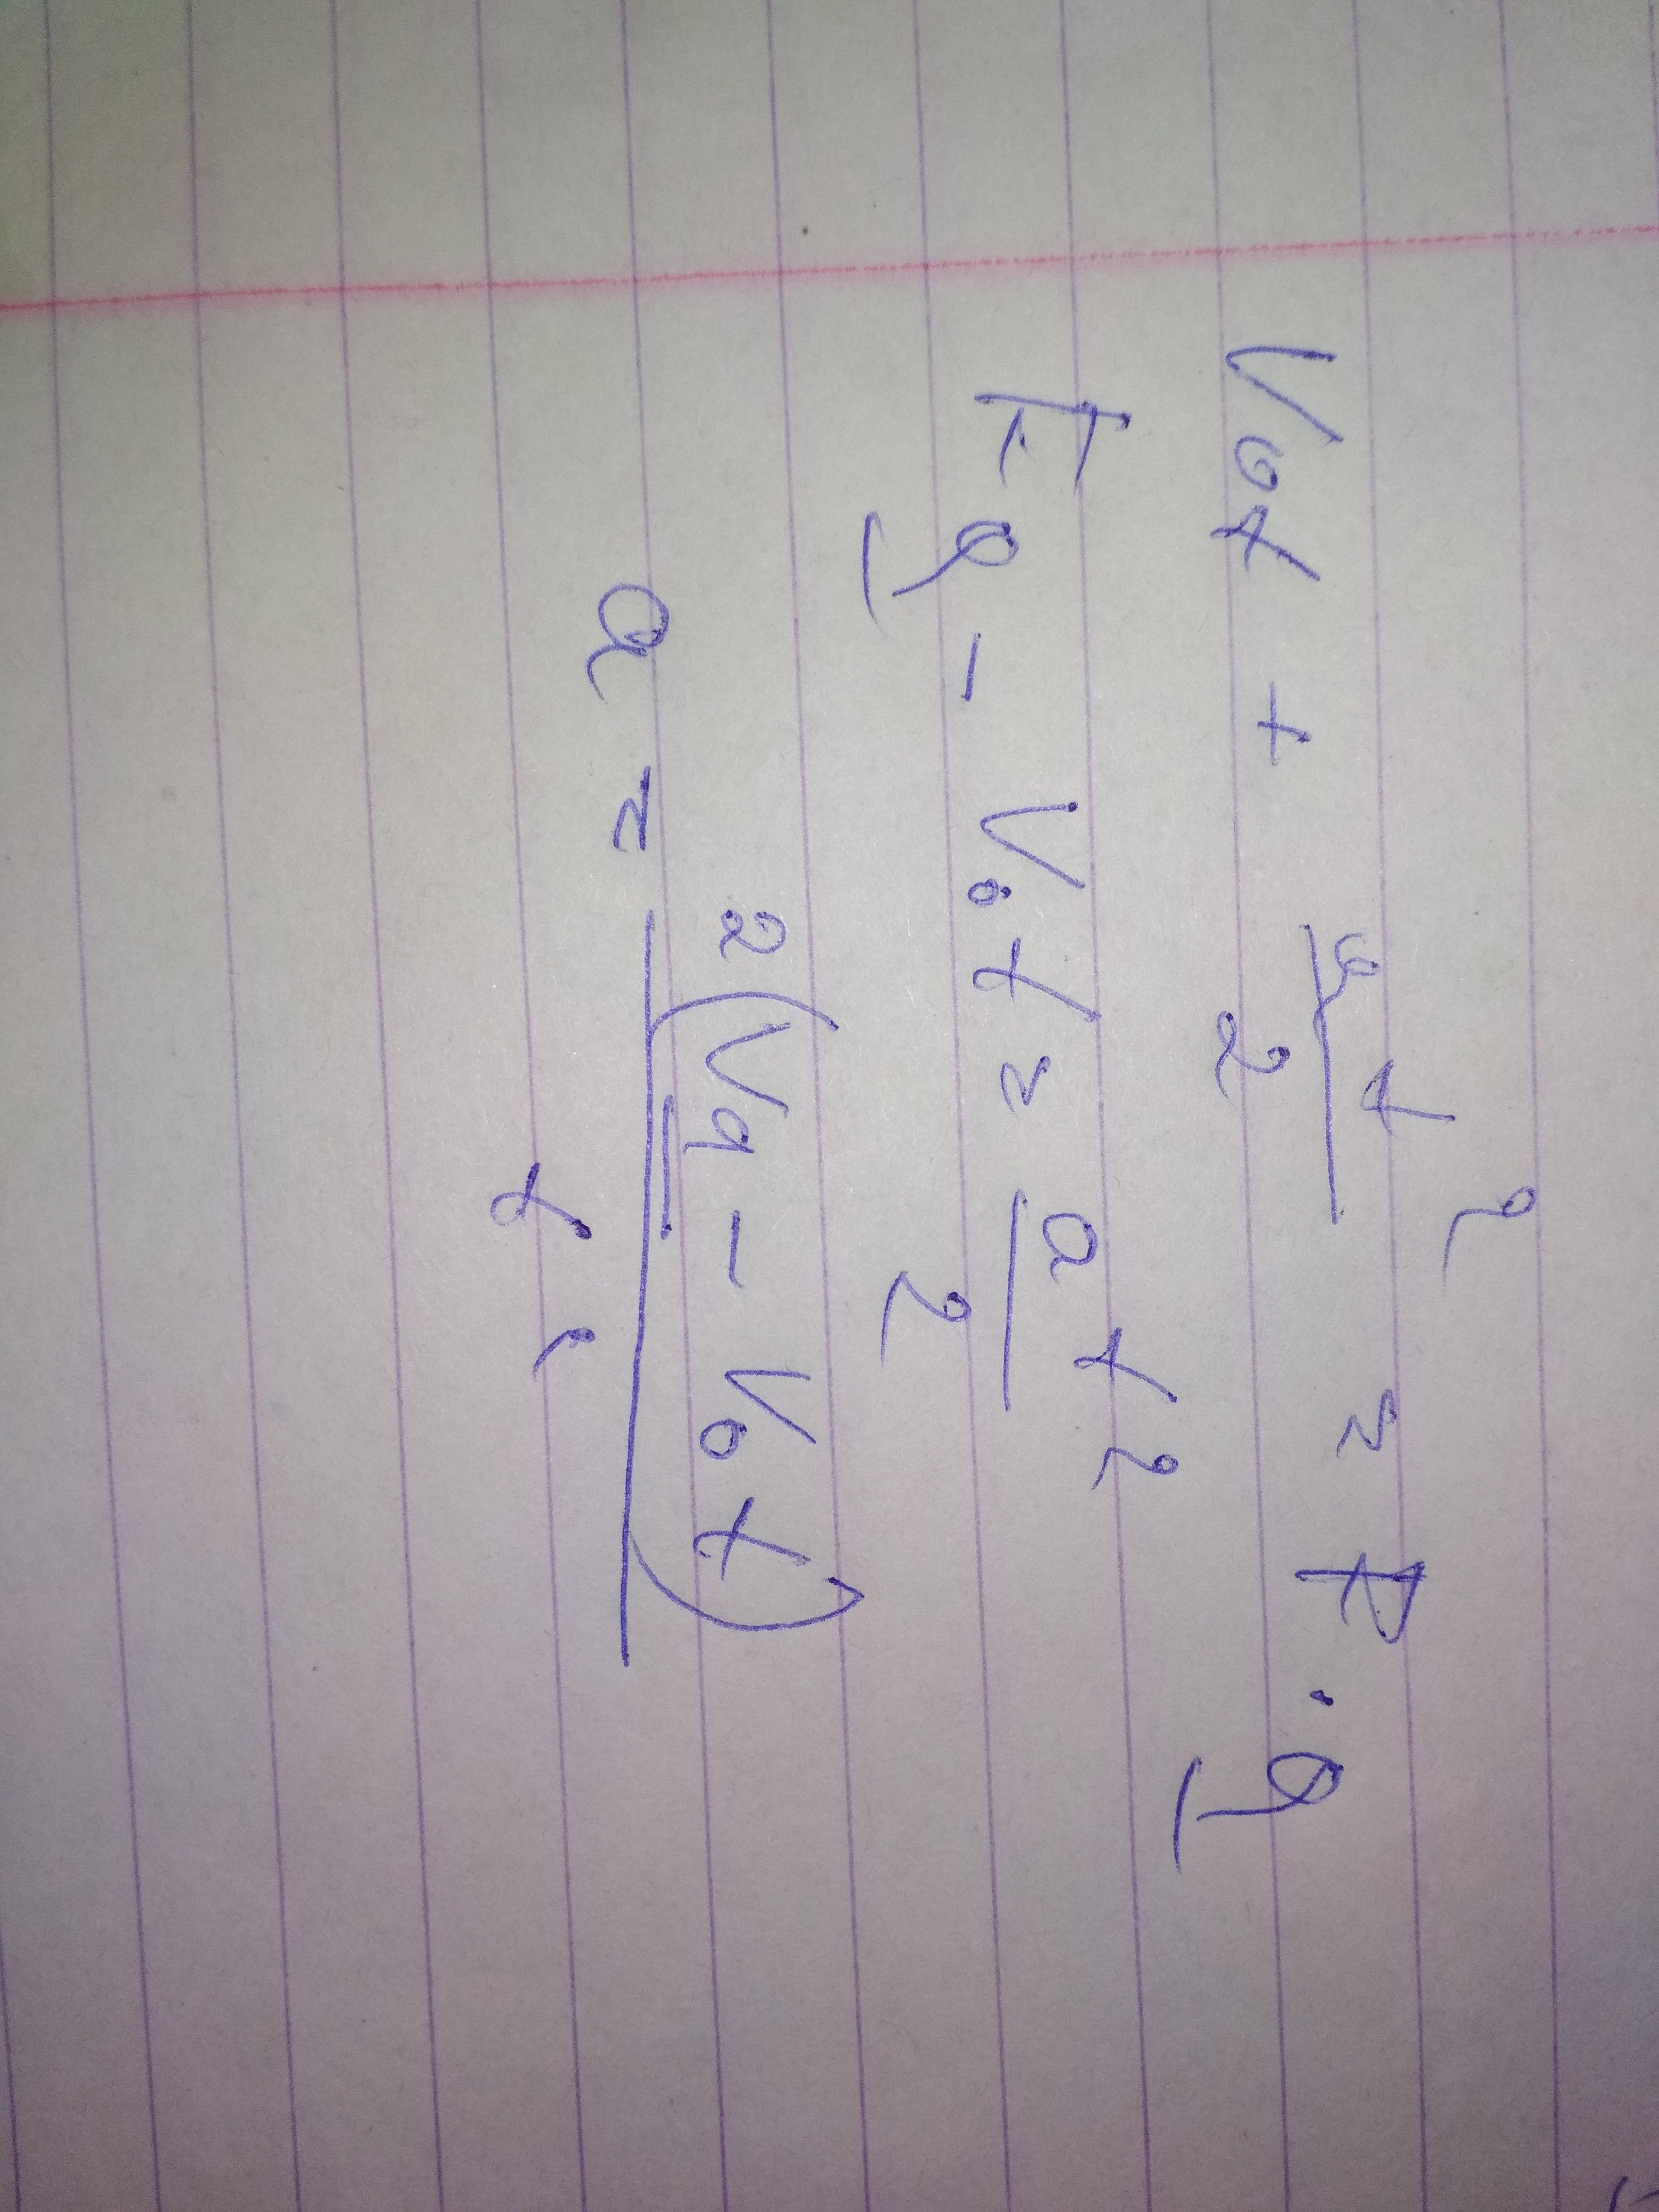 V₀t + at²/2 = F·q
Fq - V₀t = at²/2
a = 2(Vq - V₀t)/t²